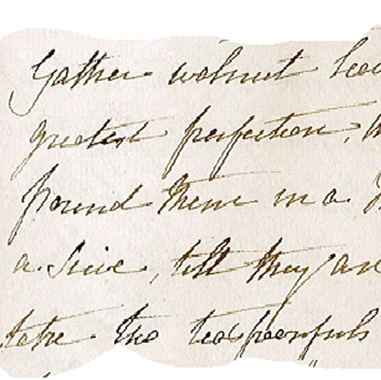 Gather walnut lea
greatest perfection,
pound them in a
a Sive, till they are
take two teaspoonfuls